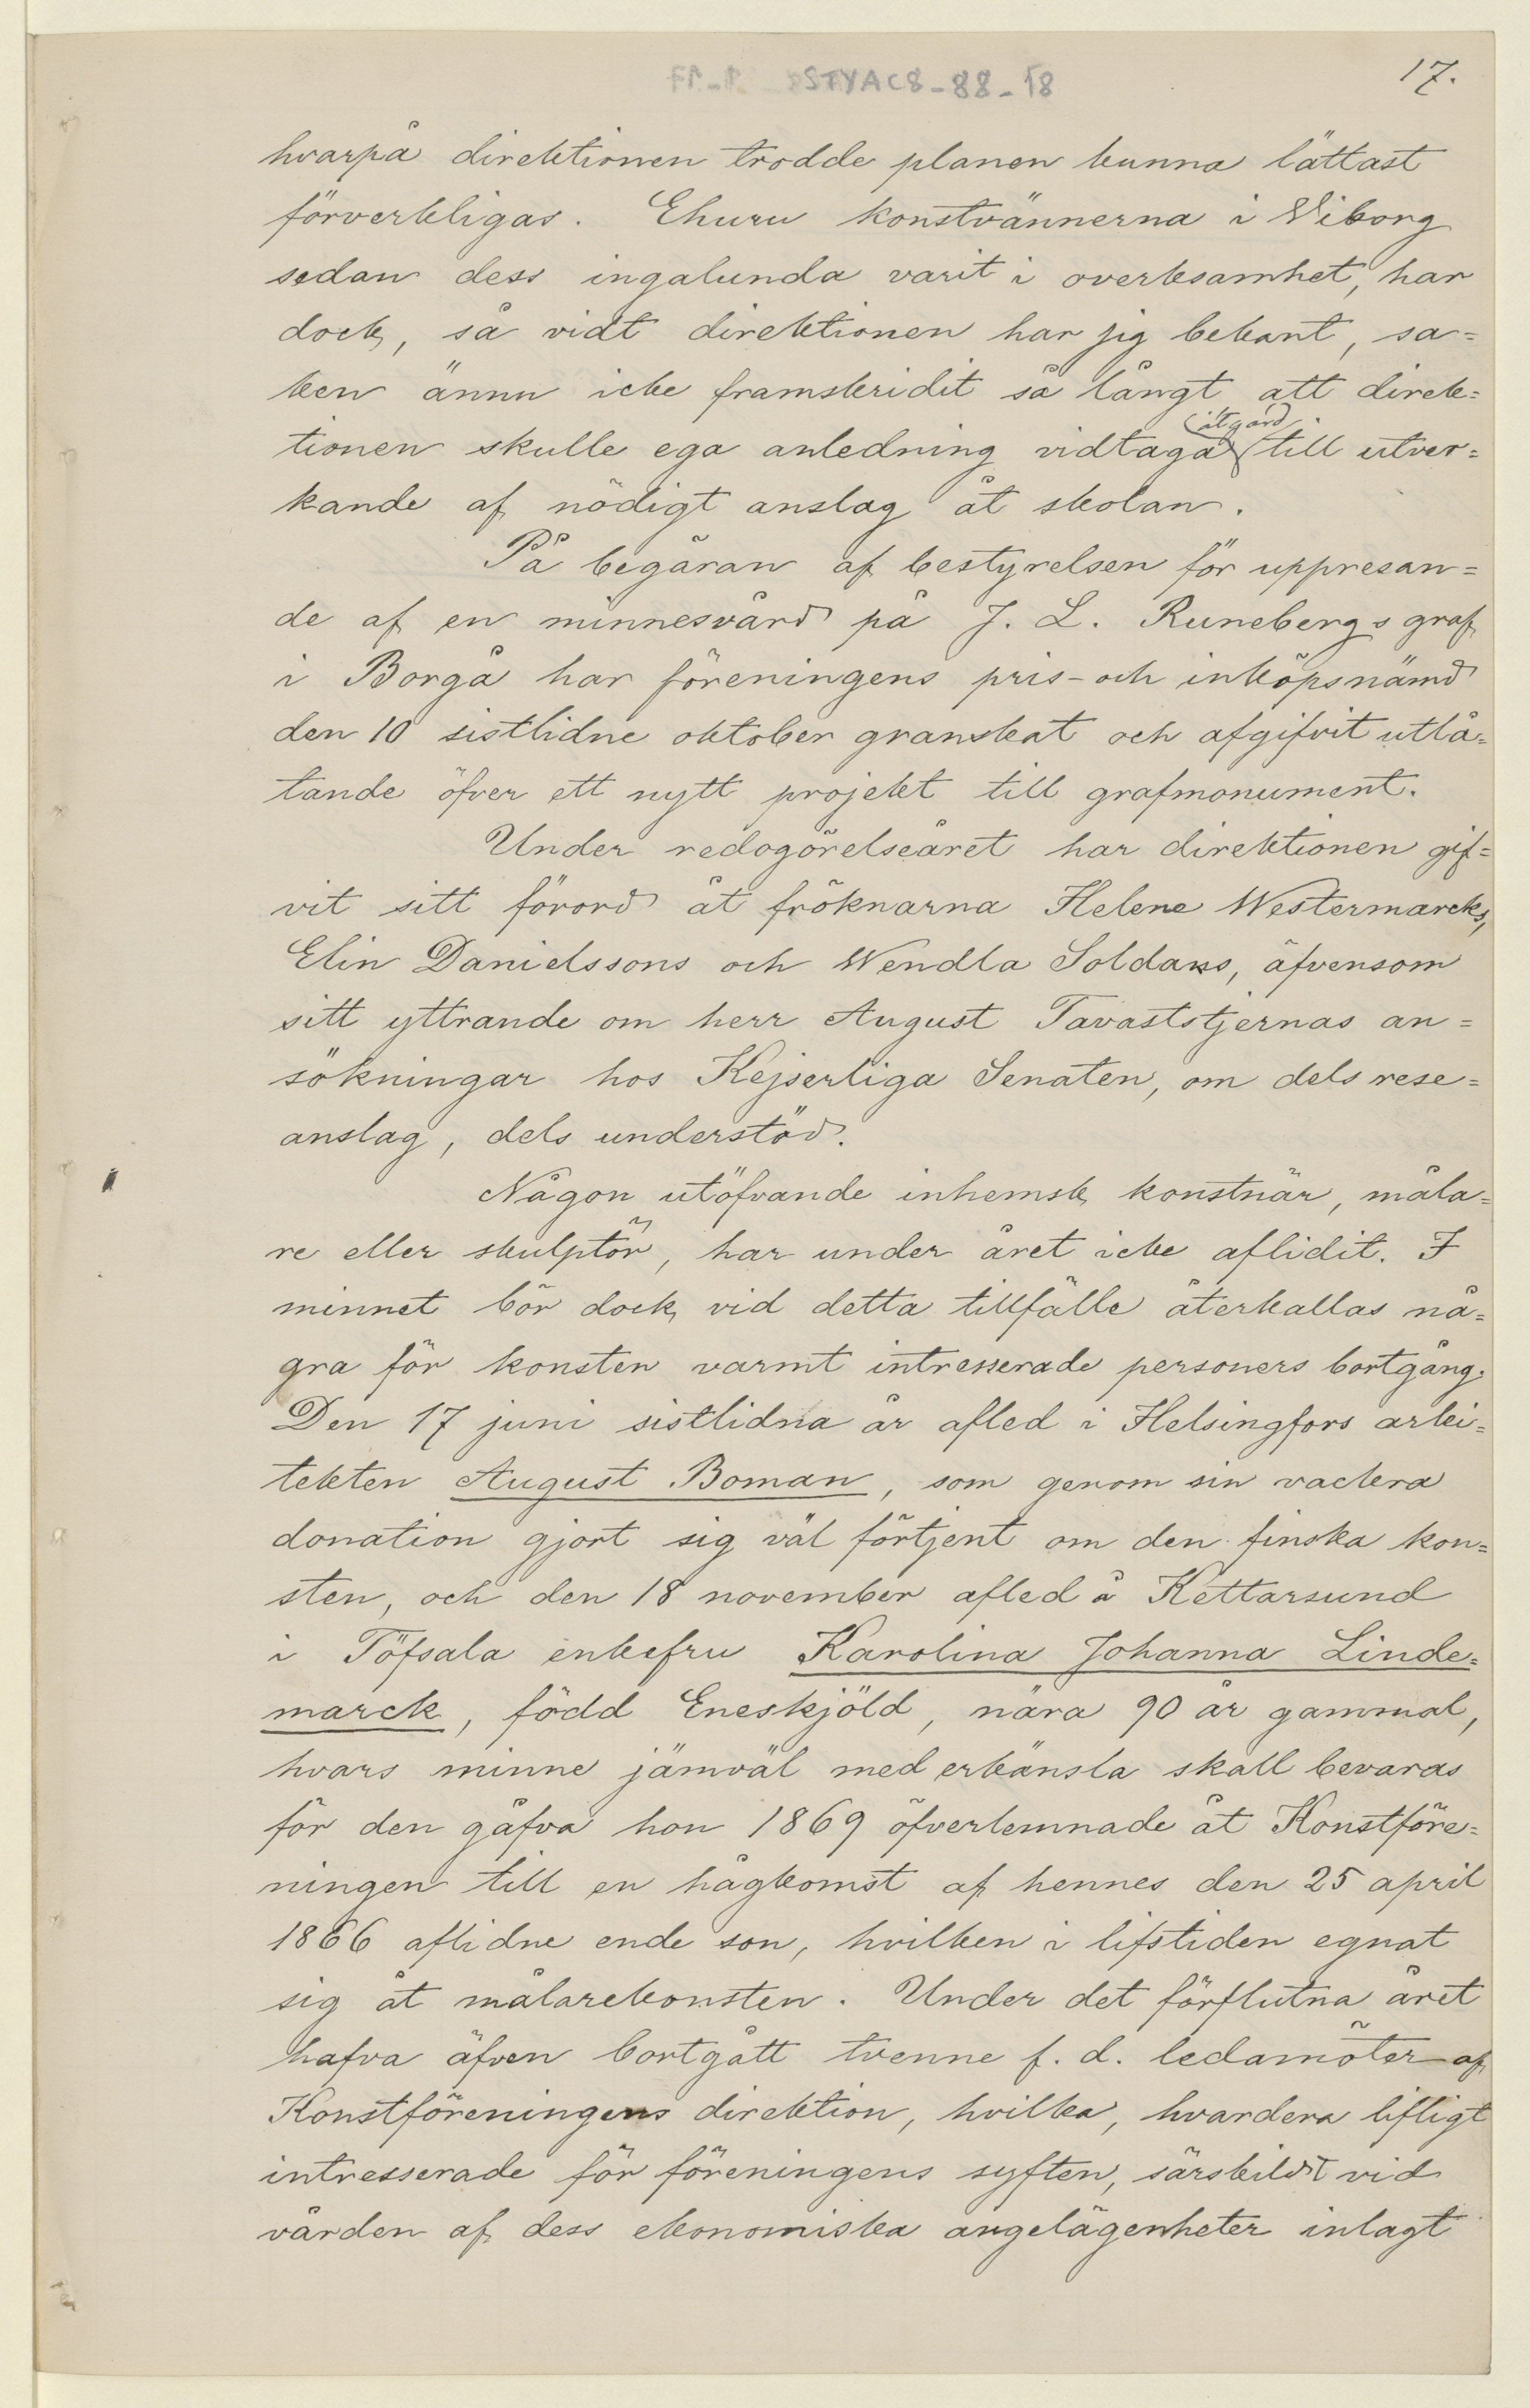 17.
hvarpå direktionen trodde planen kunna lättast
förverkligas. Ehuru konstvännerna i Viborg
sedan dess ingalunda varit i overksamhet, har
dock, så vidt direktionen har sig bekant, sa=
ken ännu icke framskridit så långt att direk=
åtgärd
tionen skulle ega anledning vidtaga till utver=
kande af nödigt anslag åt skolan.
På begäran af bestyrelsen för uppresan=
de af en minnesvård på J. L. Runebergs graf
i Borgå har föreningens pris- och inköpsnämd
den 10 sistlidne oktober granskat och afgifvit utlå=
tande öfver ett nytt projekt till grafmonument.
Under redogörelseåret har direktionen gif=
vit sitt förord åt fröknarna Helene Westermarcks,
Elin Danielssons och Wendla Soldans, äfvensom
sitt yttrande om herr August Tavaststjernas an=
sökningar hos Kejserliga Senaten, om dels rese=
anslag, dels understöd.
Någon utöfvande inhemsk konstnär, måla=
re eller skulptör, har under året icke aflidit. I
minnet bör dock vid detta tillfälle återkallas nå=
gra för konsten varmt intresserade personers bortgång.
Den 17 juni sistlidna år afled i Helsingfors arki=
tekten August Boman, som genom sin vackra
donation gjort sig väl förtjent om den finska kon=
sten, och den 18 november afled å Kettarsund
i Töfsala enkefru Karolina Johanna Linde=
marck, född Eneskjöld, nära 90 år gammal,
hvars minne jämväl med erkänsla skall bevaras
för den gåfva hon 1869 öfverlemnade åt Konstföre=
ningen till en hågkomst af hennes den 25 april
1866 aflidne ende son, hvilken i lifstiden egnat
sig åt målarekonsten. Under det förflutna året
hafva äfven bortgått tvenne f. d. ledamöter af
Konstföreningens direktion, hvilka, hvardera lifligt
intresserade för föreningens syften, särskildt vid
vården af dess ekonomiska angelägenheter inlagt